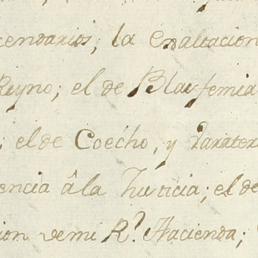 cendarios; la exaltacion
Reyno; el de Blasfemia
; el de Coecho, y
encia â la Justicia; el de
cion de mi R.l Hacienda;